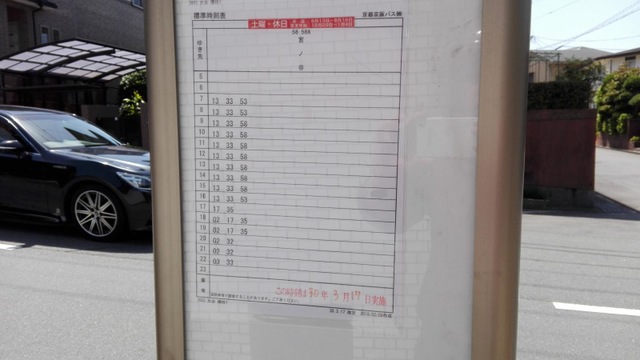 標準時刻表
京都京阪バス㈱
土曜・休日
ゆき先
56 56A
宮ノ谷
5
6
7 13 33 53
8 13 33 53
9 13 33 58
10 13 33 58
11 13 33 58
12 13 33 58
13 13 33 58
14 13 33 58
15 13 33 58
16 13 33 53
17 17 35
18 02 17 35
19 02 17 35
20 02 32
21 02 32
22 03 33
23
この時刻表は30年3月17日実施